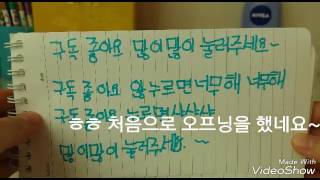 구독 좋아요 많이많이 눌러주세요~
구독 좋아요 않누르면너무해 너무해
구독 좋아요 누르면 샤샤샤
ㅎㅎ 처음으로 오프닝을 했네요~
많이많이 눌러주세요. ~
NIVEA
Made With
VideoShow